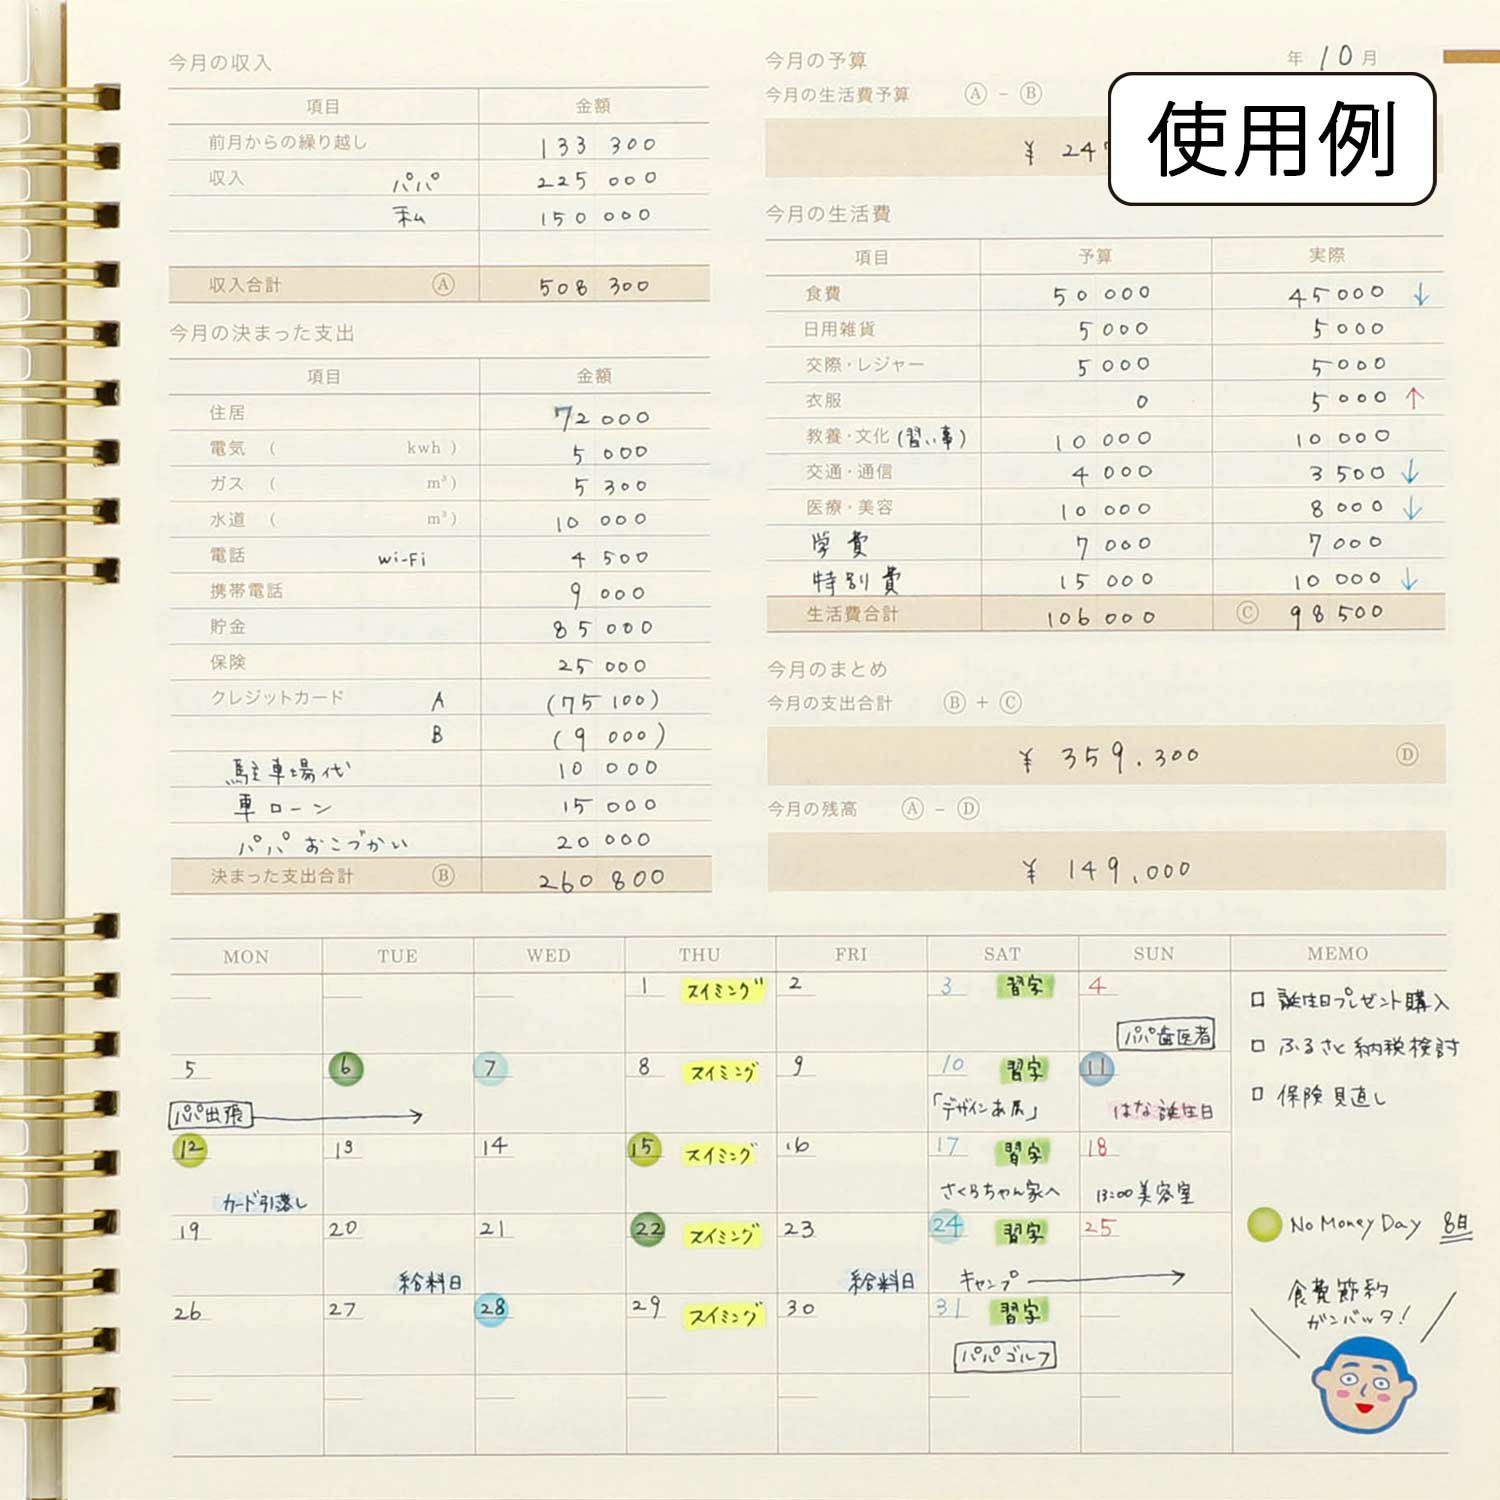 使用例
年 10 月
今月の収入
項目 金額
前月からの繰り越し 133 300
収入 パパ 225 000
私 150 000
収入合計 Ⓐ 508 300
今月の決まった支出
項目 金額
住居 72 000
電気 ( kwh ) 5 000
ガス ( m³ ) 5 300
水道 ( m³ ) 10 000
電話 Wi-Fi 4 500
携帯電話 9 000
貯金 85 000
保険 25 000
クレジットカード A (75 100)
B (9 000)
駐車場代 10 000
車ローン 15 000
パパおこづかい 20 000
決まった支出合計 Ⓑ 260 800
今月の予算
今月の生活費予算 Ⓐ - Ⓑ
¥ 247
今月の生活費
項目 予算 実際
食費 50 000 45000 ↓
日用雑貨 5 000 5 000
交際・レジャー 5 000 5000
衣服 0 5 000 ↑
教養・文化 (習い事) 10 000 10 000
交通・通信 4 000 3 500 ↓
医療・美容 10 000 8 000 ↓
学費 7 000 7 000
特別費 15 000 10 000 ↓
生活費合計 106 000 Ⓒ 98 500
今月のまとめ
今月の支出合計 Ⓑ + Ⓒ
¥ 359.300 Ⓓ
今月の残高 Ⓐ - Ⓓ
¥ 149,000
MON TUE WED THU FRI SAT SUN MEMO
1 スイミング 2 3 習字 4
パパ歯医者
5 6 7 8 スイミング 9 10 習字 11
パパ出張 「デザインあ展」 はな誕生日
12 13 14 15 スイミング 16 17 習字 18
カード引落し さくらちゃん家へ 13:00美容室
19 20 21 22 スイミング 23 24 習字 25
給料日 給料日 キャンプ
26 27 28 29 スイミング 30 31 習字
パパゴルフ
□ 誕生日プレゼント購入
□ ふるさと納税検討
□ 保険見直し
No Money Day 8日
食費節約
ガンバッタ!